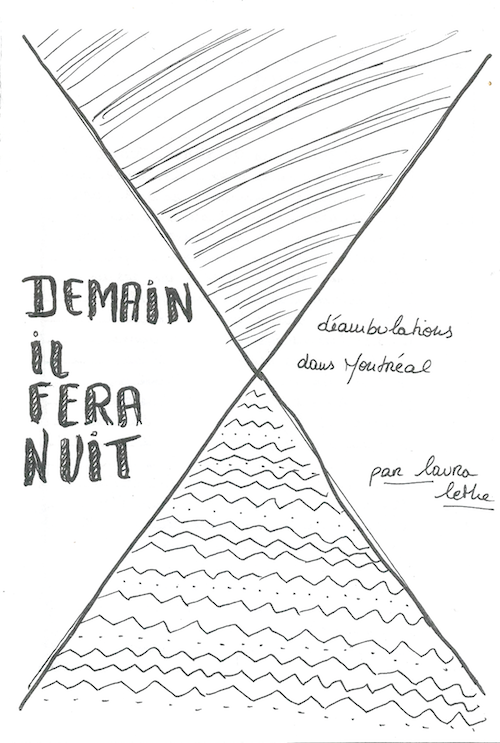 DEMAIN
IL
FERA
NUIT
déambulations
dans Montréal
par laura
lethe